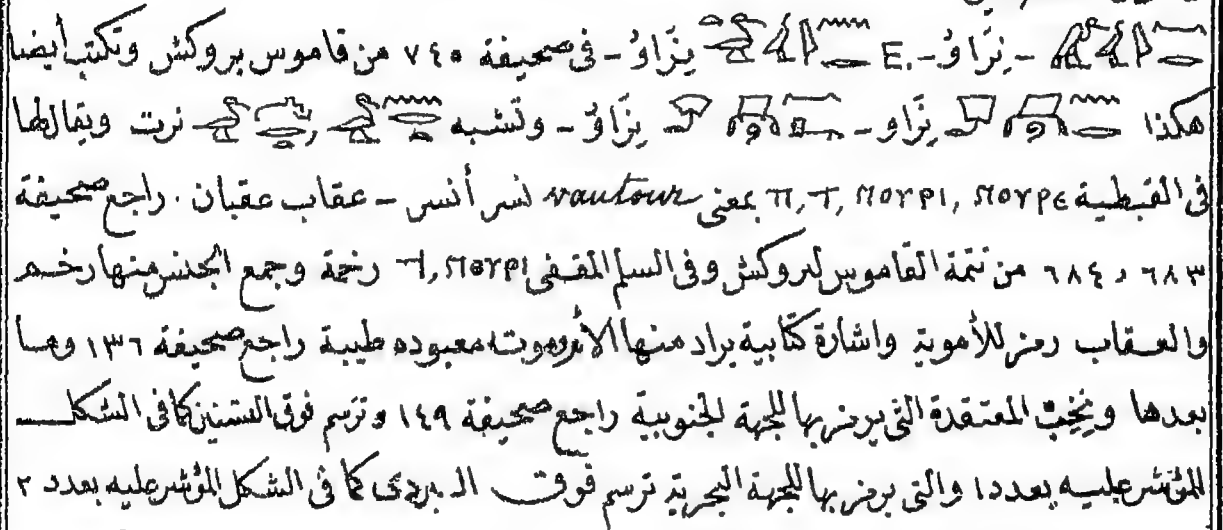 - نِرَّاوُ - .E يِرَّاوُ - فى صحيفة ٧٤٥ من قاموس بروكش وتكتب أيضا
هكذا يِرَّاو - يِرَّاوُ - وتشبه , نرت ويقال لها
فى القبطية ⲡ, ⲧ, ⲛⲟⲩⲣⲓ, ⲛⲟⲩⲣⲉ بمعنى vautour نسر أنسر - عقاب عقبان . راجع صحيفة
٦٨٣ و ٦٨٤ من تتمة القاموس لبروكش وفى السلم المقفى ϯ, ⲛⲟⲩⲣⲓ رخمة وجمع الجنس منها رخم
والعقاب رمز للأموية واشارة كتابية يراد منها الأم وموت معبوده طيبة راجع صحيفة ١٣٦ وما
بعدها ونِخِبْ المعتقدة التى يرمز بها للجهة الجنوبية راجع صحيفة ١٤٩ وترسم فوق السنين كما فى الشكل
المؤشر عليه بعدد ١ والتى يرمز بها للجهة البحرية ترسم فوق البردى كما فى الشكل المؤشر عليه بعدد ٢